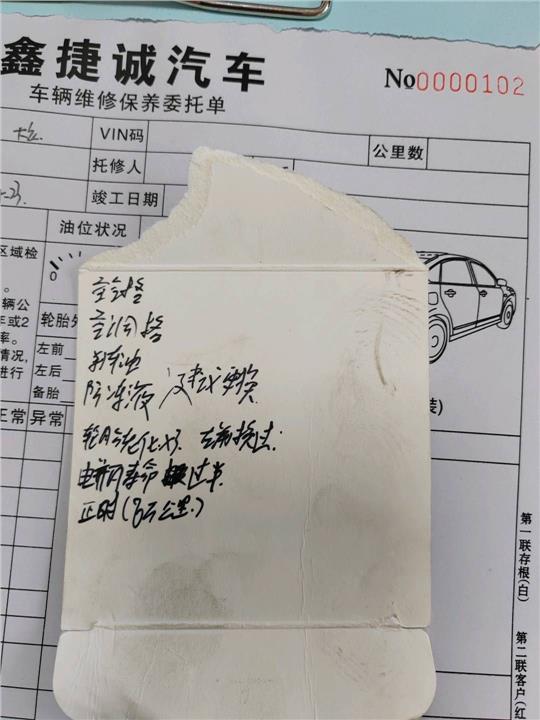 鑫捷诚汽车
No0000102
车辆维修保养委托单
VIN码
公里数
托修人
竣工日期
油位状况
区域检
0
。
辆公
年或2
率。
情况,
进行
轮胎外
左前
左后
备胎
正常 异常
装)
空气格
空调格
刹车油
防冻液 建议更换
轮胎老化
左前换过.
电瓶寿命 过半
正时(8万公里.)
第一联存根(白)
第二联客户(红